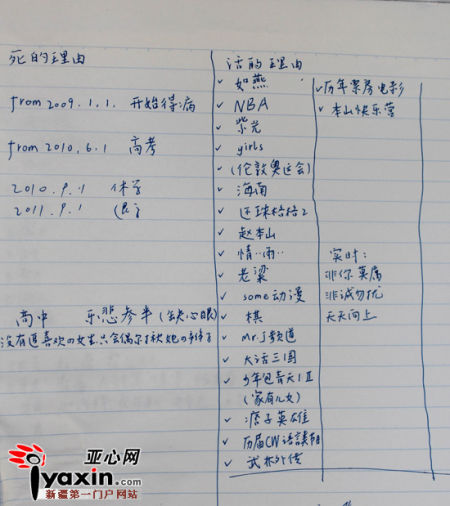 死的理由
from 2009.1.1. 开始得病
from 2010.6.1 高考
2010.9.1 休学
2011.9.1
高中 乐悲参半(缺心眼)
活的理由
✓ 如燕
✓ NBA
✓ 紫光
✓ girls
✓ (伦敦奥运会)
✓ 海南
✓ 还珠格格2
✓ 赵本山
✓ 情…雨…
✓ 老梁
✓ some动漫
✓ 棋
✓ Mr.J频道
✓ 大话三国
✓ 少年包青天 I II
(家有儿女)
✓ 痞子英雄
✓ 历届CW语谈节目
✓ 武林外传
✓ 历年票房电影
✓ 本山快乐营
实时:
非你莫属
非诚勿扰
天天向上
亚心网
iyaxin.com
新疆第一门户网站